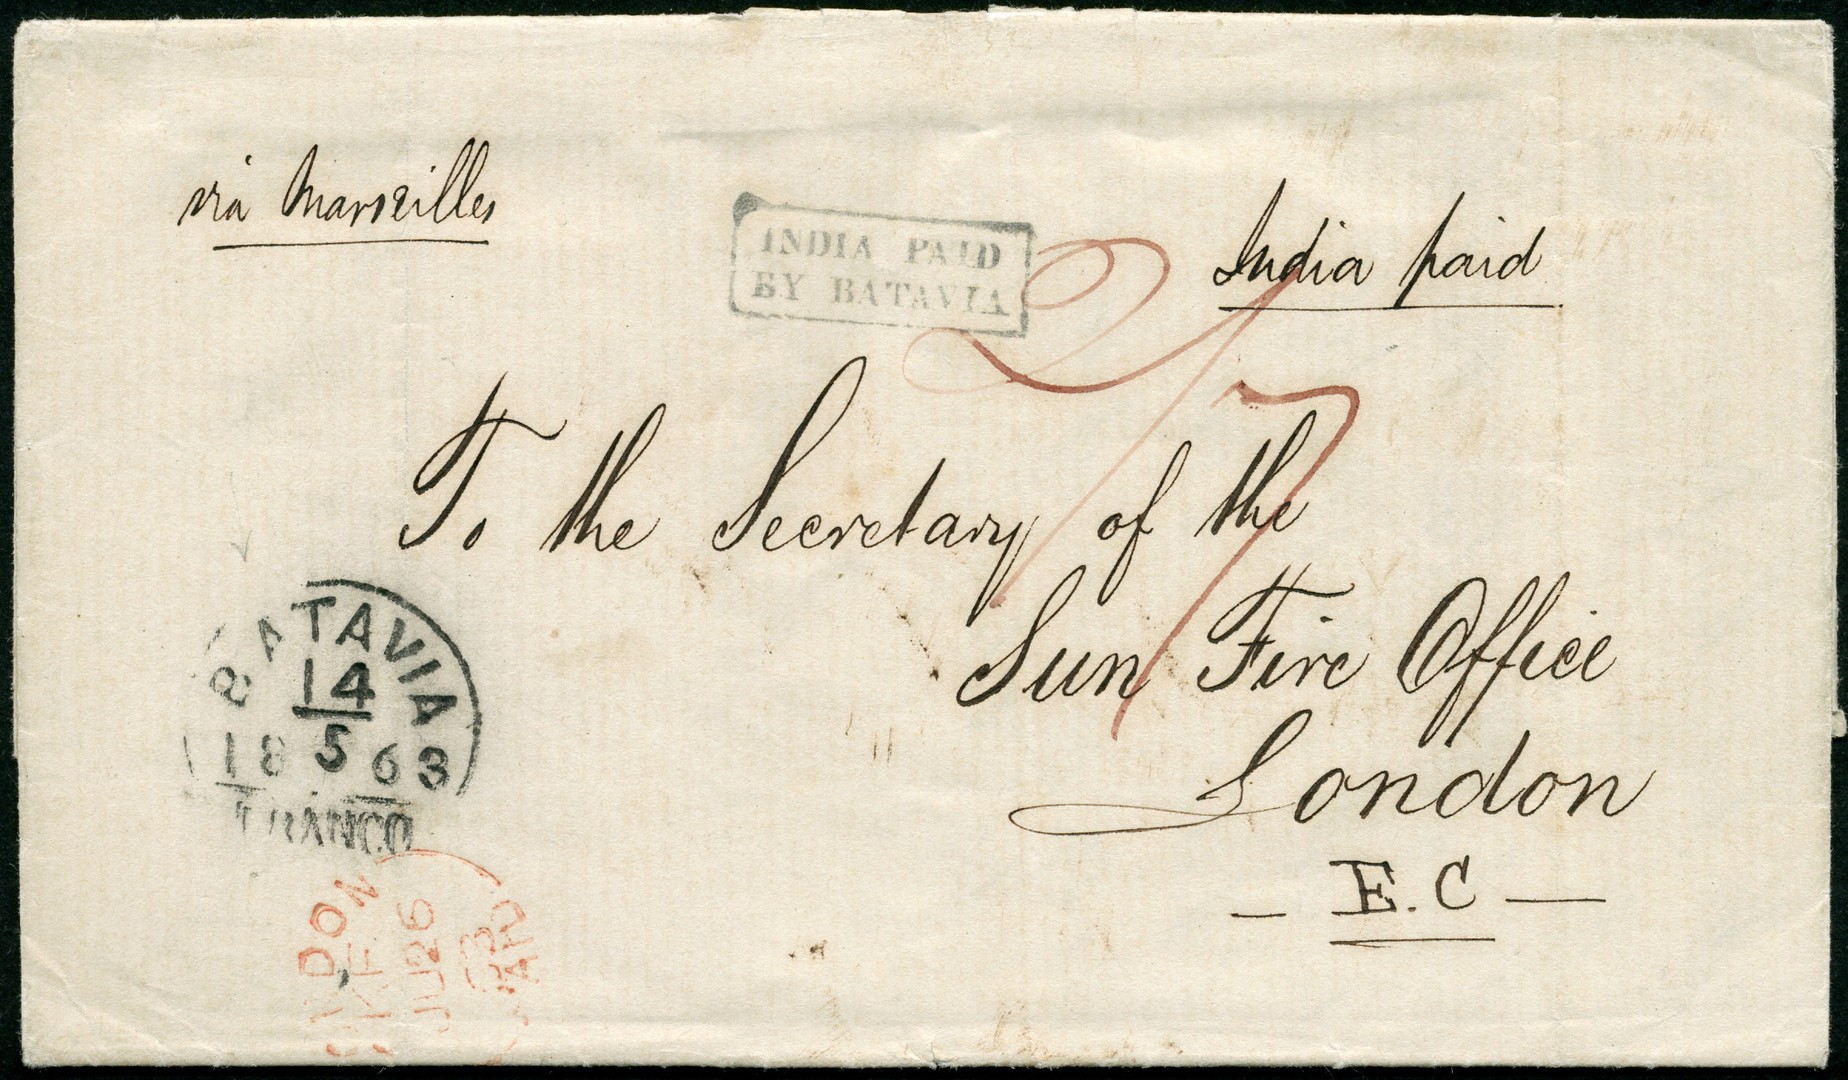 via Marseilles
INDIA PAID
BY BATAVIA
India paid
To the Secretary of the
Sun Fire Office
London
E.C
BATAVIA
14
5
1863
FRANCO
PAID